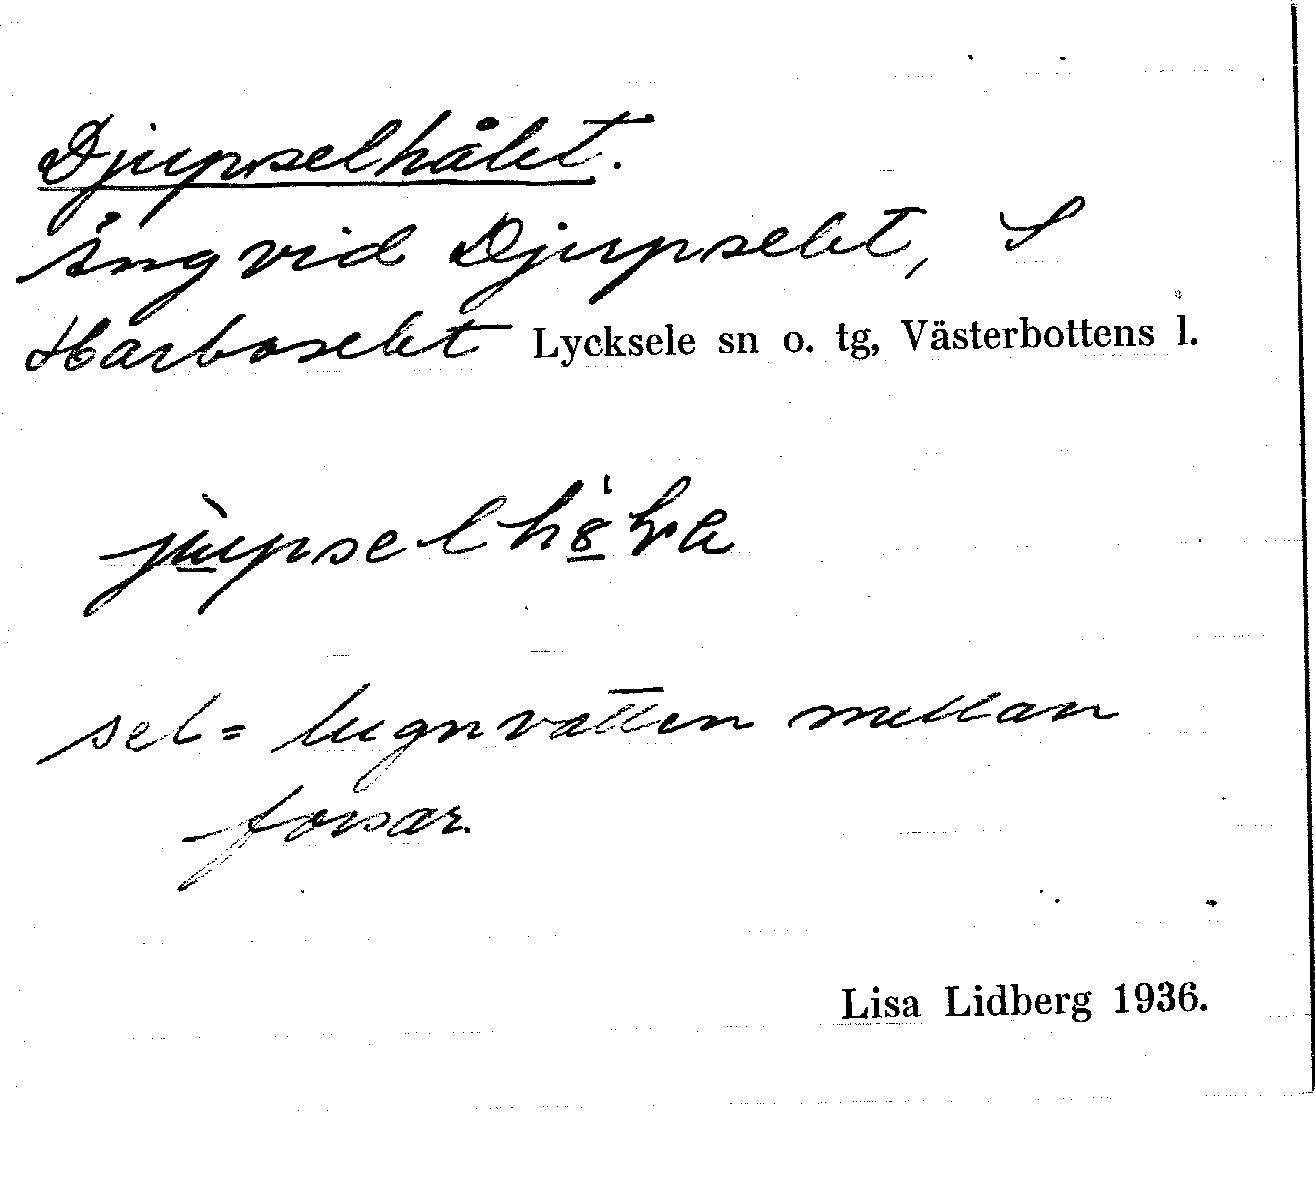 Djupselhålet.
Äng vid Djupselet, S
Harboselet Lycksele sn o. tg, Västerbottens l.
sel= lugnvatten mellan
forsar.
Lisa Lidberg 1936.